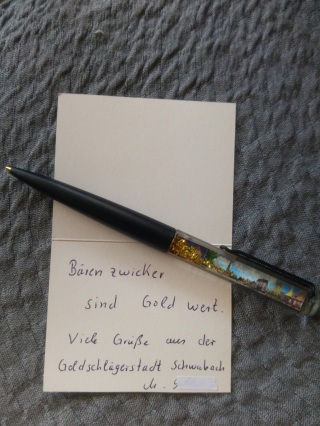 Bärenzwicker
sind Gold wert.
Viele Grüße aus der
Goldschlägerstadt Schwabach
M. S